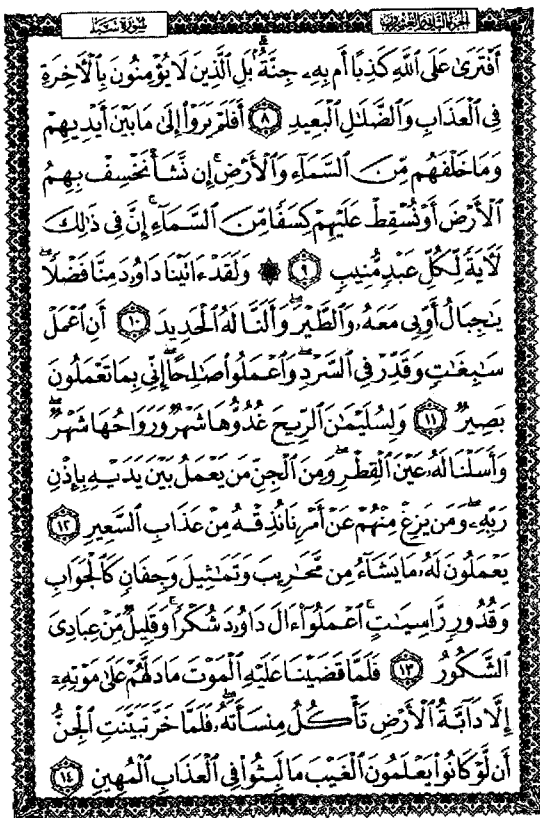 سُورَةُ سَبَإٍ الجزء الثاني والعشرون
أَفْتَرَىٰ عَلَى ٱللَّهِ كَذِبًا أَم بِهِۦ جِنَّةُۢ بَلِ ٱلَّذِينَ لَا يُؤْمِنُونَ بِٱلْأَخِرَةِ
فِى ٱلْعَذَابِ وَٱلضَّلَـٰلِ ٱلْبَعِيدِ ٨ أَفَلَمْ يَرَوْا۟ إِلَىٰ مَا بَيْنَ أَيْدِيهِمْ
وَمَا خَلْفَهُم مِّنَ ٱلسَّمَآءِ وَٱلْأَرْضِ ۚ إِن نَّشَأْ نَخْسِفْ بِهِمُ
ٱلْأَرْضَ أَوْ نُسْقِطْ عَلَيْهِمْ كِسَفًا مِّنَ ٱلسَّمَآءِ ۚ إِنَّ فِى ذَٰلِكَ
لَـَٔايَةً لِّكُلِّ عَبْدٍ مُّنِيبٍ ٩ ۞ وَلَقَدْ ءَاتَيْنَا دَاوُۥدَ مِنَّا فَضْلًا ۖ
يَـٰجِبَالُ أَوِّبِى مَعَهُۥ وَٱلطَّيْرَ ۖ وَأَلَنَّا لَهُ ٱلْحَدِيدَ ١٠ أَنِ ٱعْمَلْ
سَـٰبِغَـٰتٍ وَقَدِّرْ فِى ٱلسَّرْدِ ۖ وَٱعْمَلُوا۟ صَـٰلِحًا ۖ إِنِّى بِمَا تَعْمَلُونَ
بَصِيرٌ ١١ وَلِسُلَيْمَـٰنَ ٱلرِّيحَ غُدُوُّهَا شَهْرٌ وَرَوَاحُهَا شَهْرٌ ۖ
وَأَسَلْنَا لَهُۥ عَيْنَ ٱلْقِطْرِ ۖ وَمِنَ ٱلْجِنِّ مَن يَعْمَلُ بَيْنَ يَدَيْهِ بِإِذْنِ
رَبِّهِۦ ۖ وَمَن يَزِغْ مِنْهُمْ عَنْ أَمْرِنَا نُذِقْهُ مِنْ عَذَابِ ٱلسَّعِيرِ ١٢
يَعْمَلُونَ لَهُۥ مَا يَشَآءُ مِن مَّحَـٰرِيبَ وَتَمَـٰثِيلَ وَجِفَانٍ كَٱلْجَوَابِ
وَقُدُورٍ رَّاسِيَـٰتٍ ۚ ٱعْمَلُوٓا۟ ءَالَ دَاوُۥدَ شُكْرًا ۚ وَقَلِيلٌ مِّنْ عِبَادِىَ
ٱلشَّكُورُ ١٣ فَلَمَّا قَضَيْنَا عَلَيْهِ ٱلْمَوْتَ مَا دَلَّهُمْ عَلَىٰ مَوْتِهِۦٓ
إِلَّا دَآبَّةُ ٱلْأَرْضِ تَأْكُلُ مِنسَأَتَهُۥ ۖ فَلَمَّا خَرَّ تَبَيَّنَتِ ٱلْجِنُّ
أَن لَّوْ كَانُوا۟ يَعْلَمُونَ ٱلْغَيْبَ مَا لَبِثُوا۟ فِى ٱلْعَذَابِ ٱلْمُهِينِ ١٤